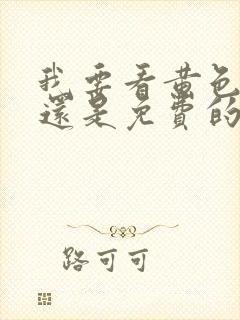 我要看黄色
還是免費的
路可可